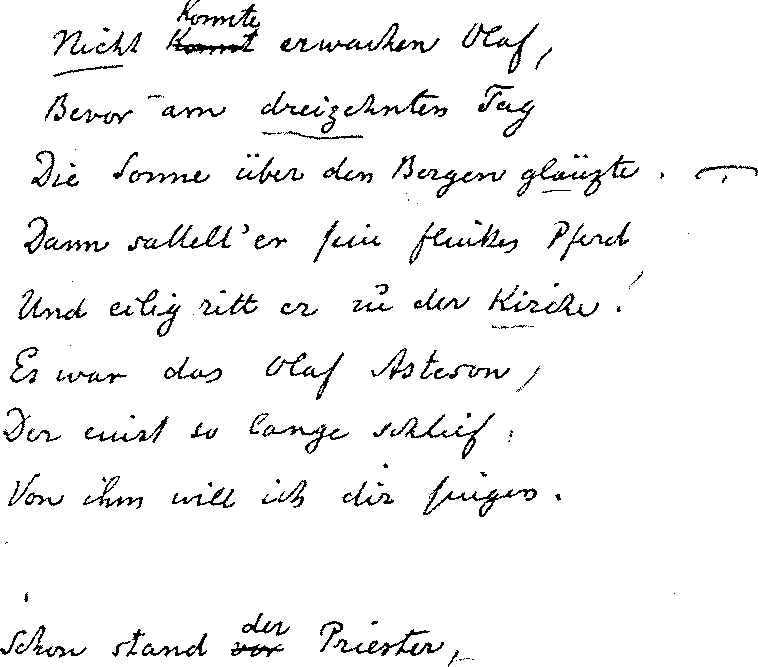 Nicht konnte erwachen Olaf,
Bevor am dreizehnten Tag
Die Sonne über den Bergen glänzte.
Dann sattelt' er sein flinkes Pferd
Und eilig ritt er zu der Kirche.
Es war das Olaf Asteson,
Der einst so lange schlief:
Von ihm will ich dir singen.
Schon stand der Priester,